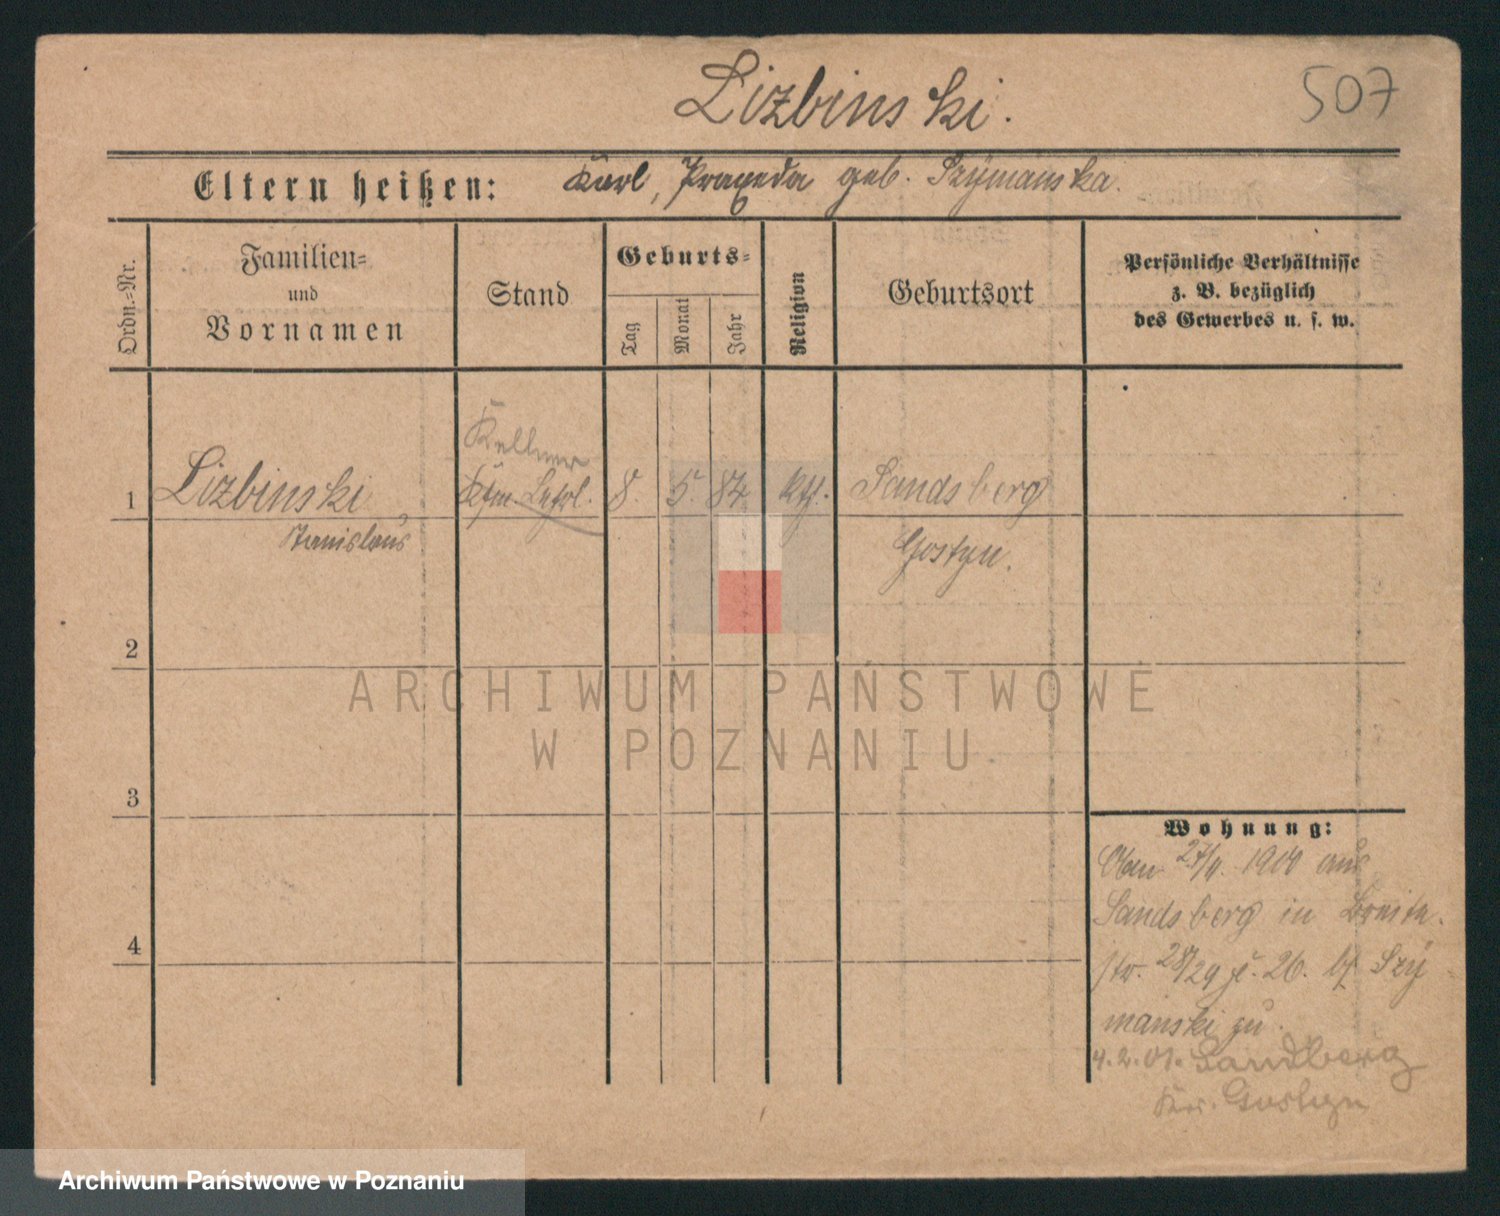 Lizbinski.
507
Eltern heißen: Karl, Praxeda geb. Szymańska.
Ordn.-Nr.
Familien- und Vornamen
Stand
Geburts-
Tag
Monat
Jahr
Religion
Geburtsort
Persönliche Verhältnisse
z. B. bezüglich
des Gewerbes u. s. w.
Kellner
1 Lizbinski Kfm. Lehrl. 8. 5. 84 kth. Sandsberg
Stanislaus Gostyn.
2
3
4
Wohnung:
27/4. 1900 aus
Sandsberg in Breite-
str. 28/29 26. bf Szy
manski zu.
4.2.01. Sandberg
Krs. Gostyn
ARCHIWUM PAŃSTWOWE
W POZNANIU
Archiwum Państwowe w Poznaniu